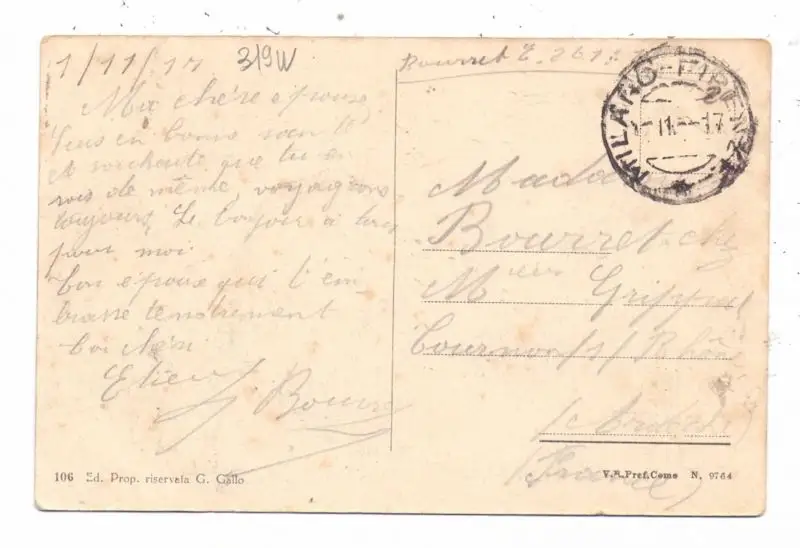 1/11/17
319W
Ma chère epouse
Suis en bonne santé
et souhaite que tu en
sois de même, voyageons
toujours. Le bonjour à tous
pour moi
Ton epoux qui t'em
brasse tendrement
Ton chéri
Etienne Bourret
Bourret E. 261
MILANO-FIRENZE
11 17
Madame
Bourret chez
Mr
Tournon s/ Rhône
Ardèche
(France)
106 Ed. Prop. riservata G. Gallo
V. R. Pref. Como N. 9764